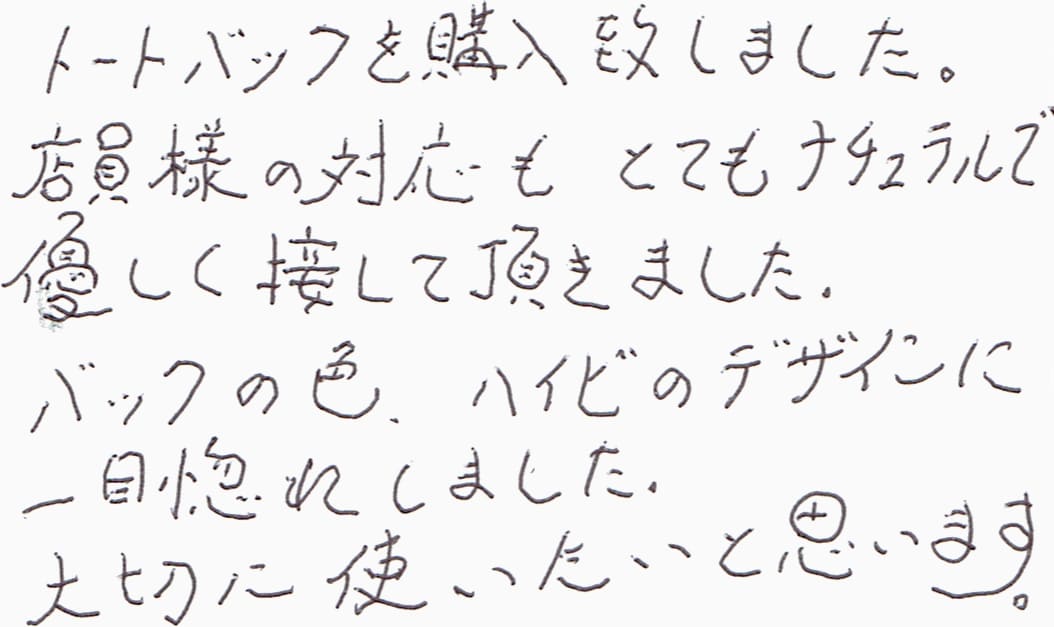 トートバックを購入致しました。
店員様の対応もとてもナチュラルで
優しく接して頂きました。
バックの色、ハイビのデザインに
一目惚れしました。
大切に使いたいと思います。